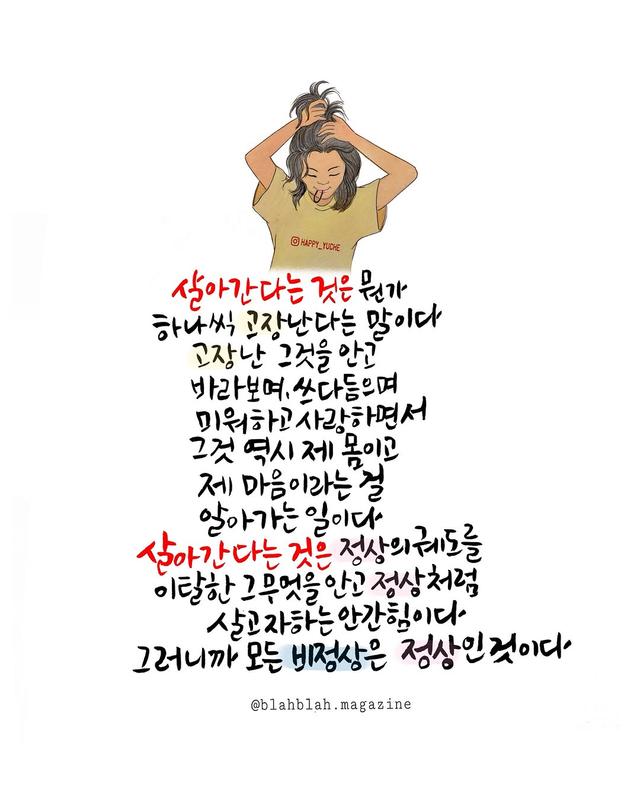 HAPPY_YUCHE
살아간다는 것은 뭔가
하나씩 고장난다는 말이다
고장난 그것을 안고
바라보며, 쓰다듬으며
미워하고 사랑하면서
그것 역시 제 몸이고
제 마음이라는 걸
알아가는 일이다
살아간다는 것은 정상의 궤도를
이탈한 그 무엇을 안고 정상처럼
살고자하는 안간힘이다
그러니까 모든 비정상은 정상인 것이다
@blahblah.magazine